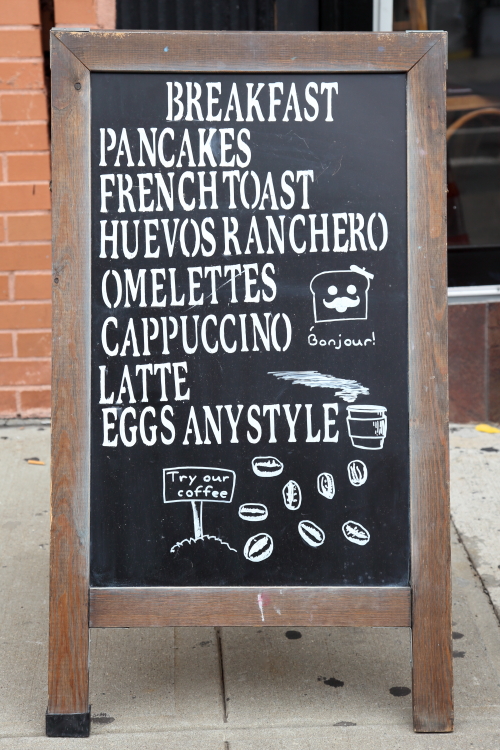 BREAKFAST
PANCAKES
FRENCH TOAST
HUEVOS RANCHERO
OMELETTES
CAPPUCCINO
Bonjour!
LATTE
EGGS ANY STYLE
Try our
coffee